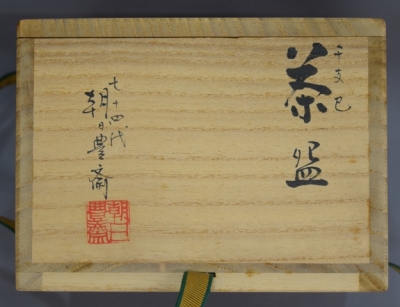 干支 巳
茶盌
十四代
朝日豊斎
朝日
豊斎